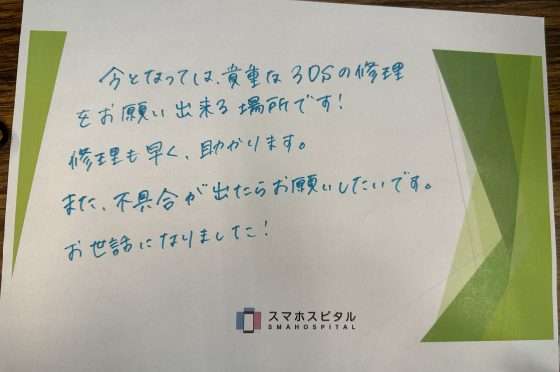 今となっては、貴重な3DSの修理
をお願い出来る場所です!
修理も早く、助かります。
また、不具合が出たらお願いしたいです。
お世話になりました!
スマホスピタル
SMAHOSPITAL